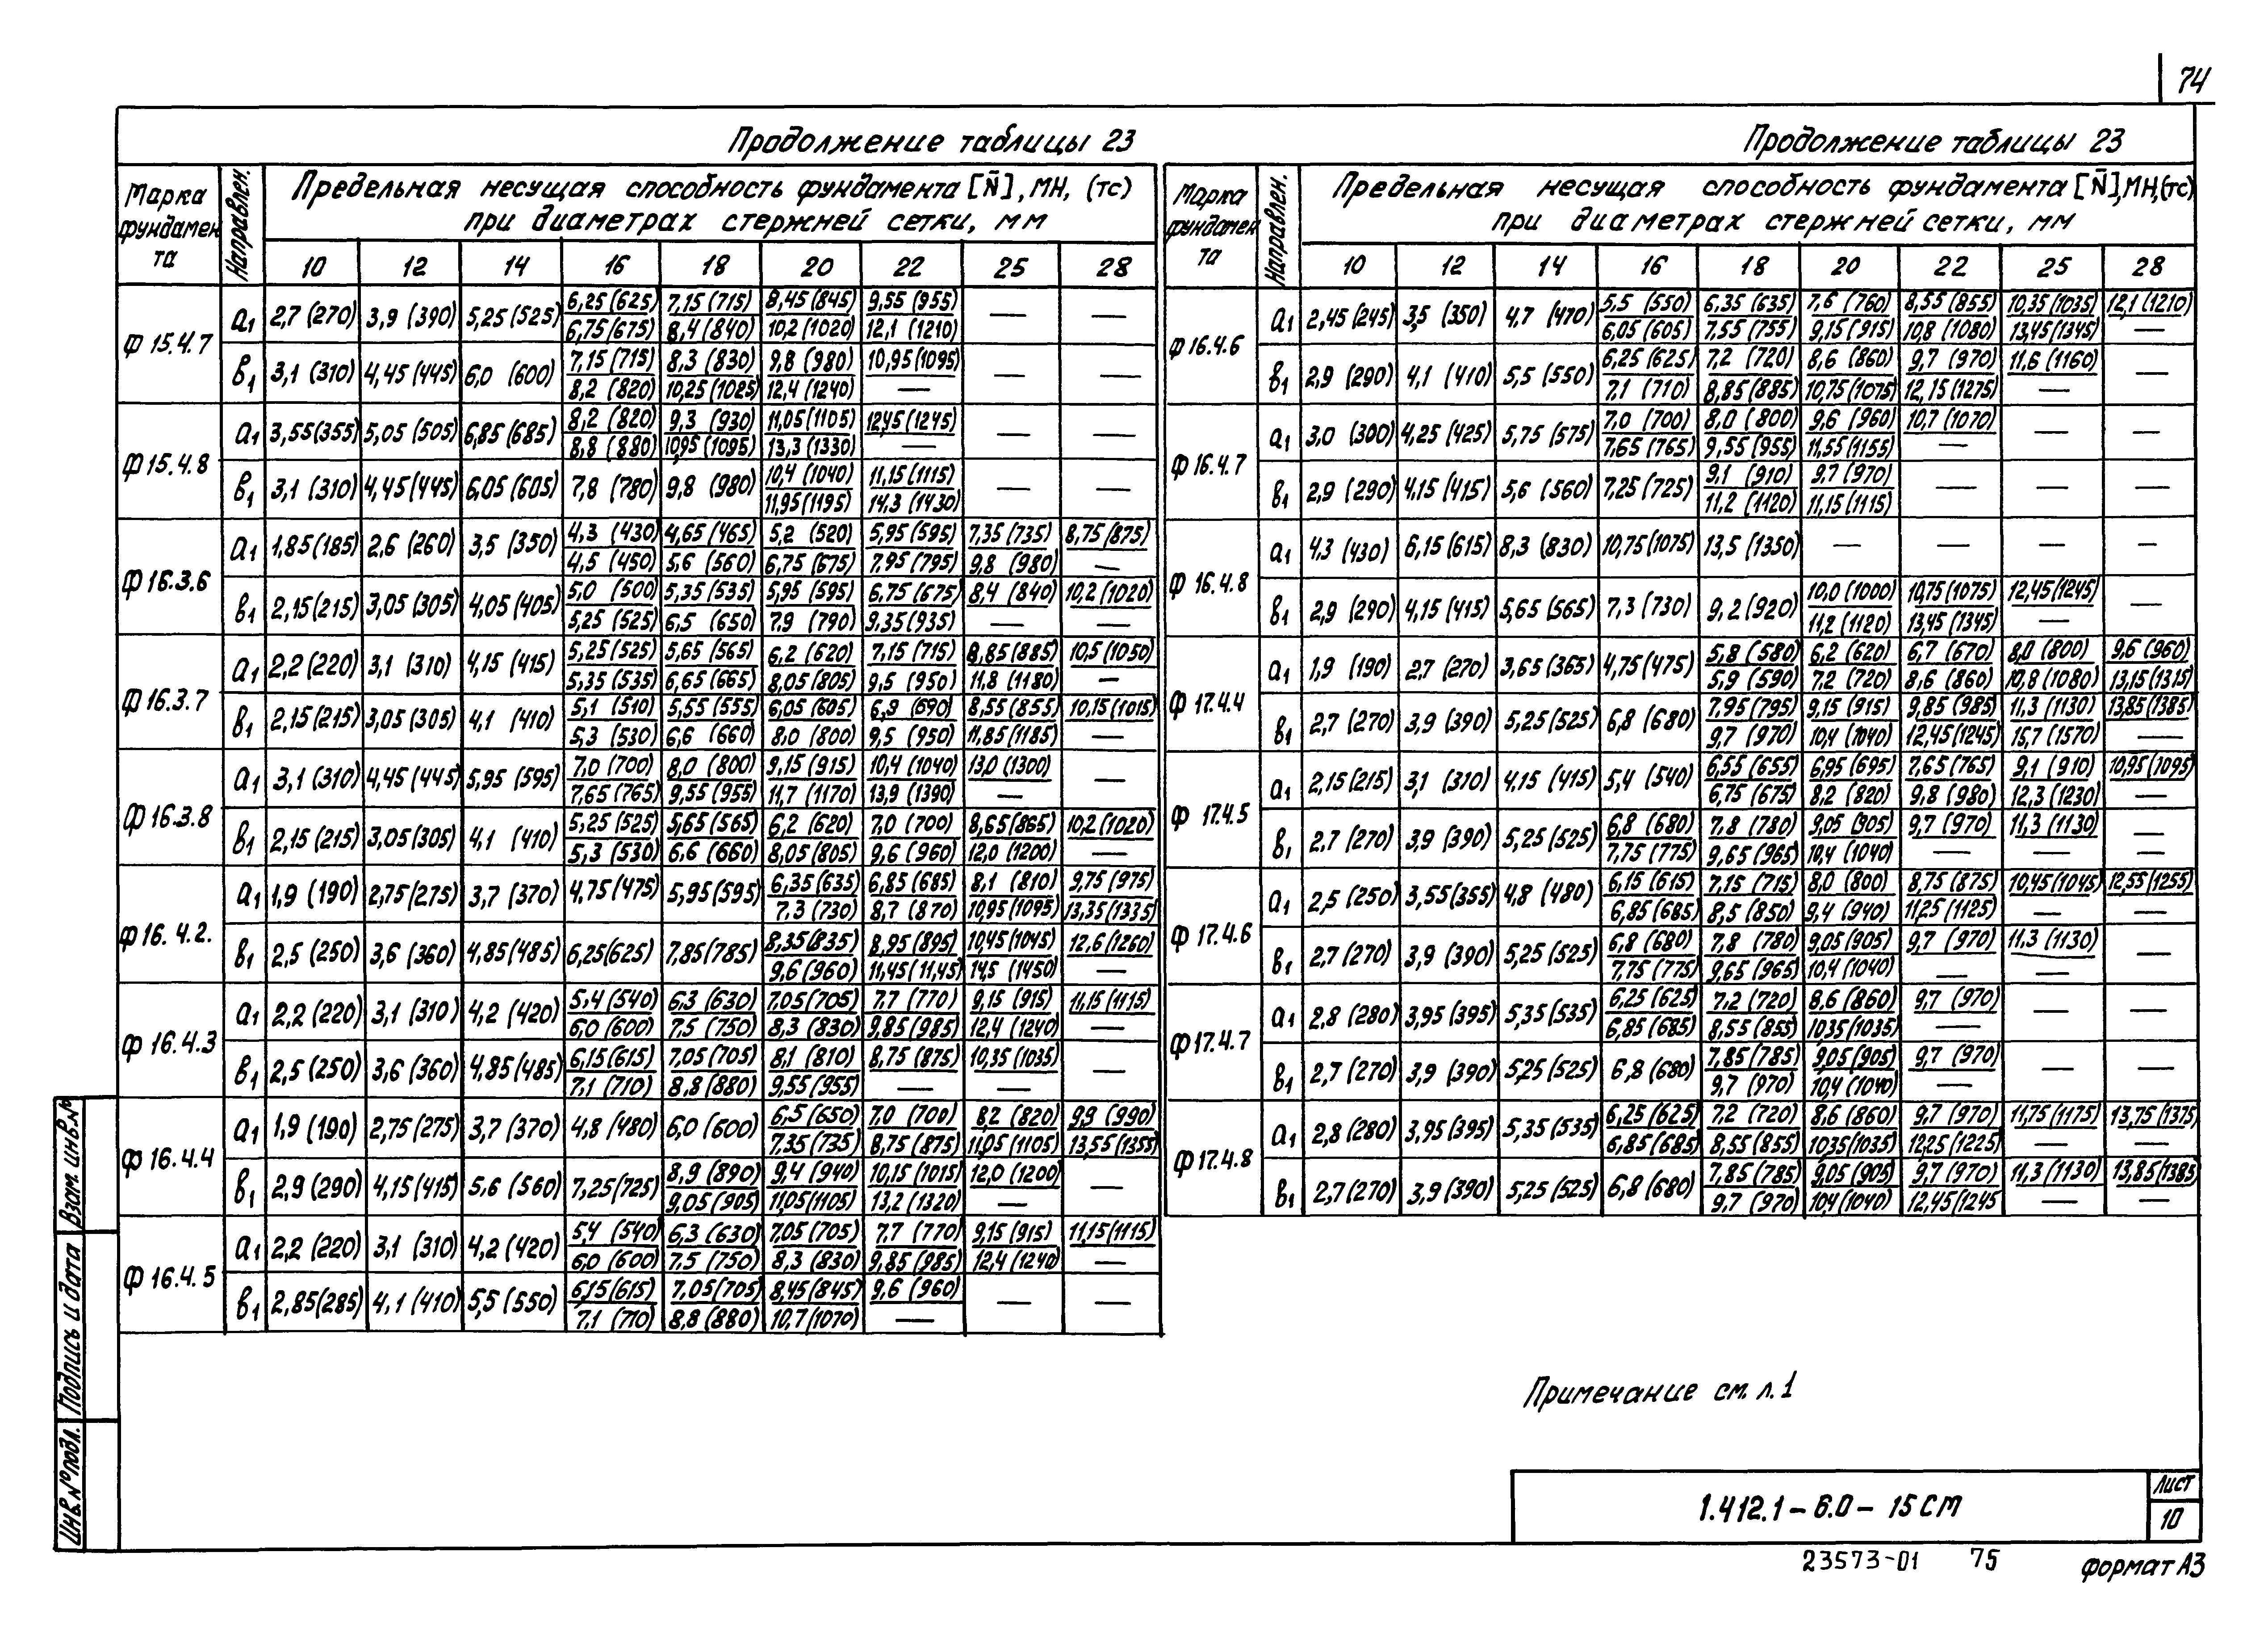 74
Продолжение таблицы 23
Марка фундамента | Направлен. | Предельная несущая способность фундамента [N̄], МН, (тс) при диаметрах стержней сетки, мм
10 | 12 | 14 | 16 | 18 | 20 | 22 | 25 | 28
Ф 15.4.7 | а1 | 2,7 (270) | 3,9 (390) | 5,25 (525) | 6,25 (625) / 6,75 (675) | 7,15 (715) / 8,4 (840) | 8,45 (845) / 10,2 (1020) | 9,55 (955) / 12,1 (1210) | — | —
в1 | 3,1 (310) | 4,45 (445) | 6,0 (600) | 7,15 (715) / 8,2 (820) | 8,3 (830) / 10,25 (1025) | 9,8 (980) / 12,4 (1240) | 10,95 (1095) / — | — | —
Ф 15.4.8 | а1 | 3,55 (355) | 5,05 (505) | 6,85 (685) | 8,2 (820) / 8,8 (880) | 9,3 (930) / 10,95 (1095) | 11,05 (1105) / 13,3 (1330) | 12,45 (1245) / — | — | —
в1 | 3,1 (310) | 4,45 (445) | 6,05 (605) | 7,8 (780) | 9,8 (980) | 10,4 (1040) / 11,95 (1195) | 11,15 (1115) / 14,3 (1430) | — | —
Ф 16.3.6 | а1 | 1,85 (185) | 2,6 (260) | 3,5 (350) | 4,3 (430) / 4,5 (450) | 4,65 (465) / 5,6 (560) | 5,2 (520) / 6,75 (675) | 5,95 (595) / 7,95 (795) | 7,35 (735) / 9,8 (980) | 8,75 (875) / —
в1 | 2,15 (215) | 3,05 (305) | 4,05 (405) | 5,0 (500) / 5,25 (525) | 5,35 (535) / 6,5 (650) | 5,95 (595) / 7,9 (790) | 6,75 (675) / 9,35 (935) | 8,4 (840) / — | 10,2 (1020) / —
Ф 16.3.7 | а1 | 2,2 (220) | 3,1 (310) | 4,15 (415) | 5,25 (525) / 5,35 (535) | 5,65 (565) / 6,65 (665) | 6,2 (620) / 8,05 (805) | 7,15 (715) / 9,5 (950) | 8,85 (885) / 11,8 (1180) | 10,5 (1050) / —
в1 | 2,15 (215) | 3,05 (305) | 4,1 (410) | 5,1 (510) / 5,3 (530) | 5,55 (555) / 6,6 (660) | 6,05 (605) / 8,0 (800) | 6,9 (690) / 9,5 (950) | 8,55 (855) / 11,85 (1185) | 10,15 (1015) / —
Ф 16.3.8 | а1 | 3,1 (310) | 4,45 (445) | 5,95 (595) | 7,0 (700) / 7,65 (765) | 8,0 (800) / 9,55 (955) | 9,15 (915) / 11,7 (1170) | 10,4 (1040) / 13,9 (1390) | 13,0 (1300) / — | —
в1 | 2,15 (215) | 3,05 (305) | 4,1 (410) | 5,25 (525) / 5,3 (530) | 5,65 (565) / 6,6 (660) | 6,2 (620) / 8,05 (805) | 7,0 (700) / 9,6 (960) | 8,65 (865) / 12,0 (1200) | 10,2 (1020) / —
Ф 16.4.2. | а1 | 1,9 (190) | 2,75 (275) | 3,7 (370) | 4,75 (475) | 5,95 (595) | 6,35 (635) / 7,3 (730) | 6,85 (685) / 8,7 (870) | 8,1 (810) / 10,95 (1095) | 9,75 (975) / 13,35 (1335)
в1 | 2,5 (250) | 3,6 (360) | 4,85 (485) | 6,25 (625) | 7,85 (785) | 8,35 (835) / 9,6 (960) | 8,95 (895) / 11,45 (11,45) | 10,45 (1045) / 14,5 (1450) | 12,6 (1260) / —
Ф 16.4.3 | а1 | 2,2 (220) | 3,1 (310) | 4,2 (420) | 5,4 (540) / 6,0 (600) | 6,3 (630) / 7,5 (750) | 7,05 (705) / 8,3 (830) | 7,7 (770) / 9,85 (985) | 9,15 (915) / 12,4 (1240) | 11,15 (1115) / —
в1 | 2,5 (250) | 3,6 (360) | 4,85 (485) | 6,15 (615) / 7,1 (710) | 7,05 (705) / 8,8 (880) | 8,1 (810) / 9,55 (955) | 8,75 (875) / — | 10,35 (1035) / — | —
Ф 16.4.4 | а1 | 1,9 (190) | 2,75 (275) | 3,7 (370) | 4,8 (480) | 6,0 (600) | 6,5 (650) / 7,35 (735) | 7,0 (700) / 8,75 (875) | 8,2 (820) / 11,05 (1105) | 9,9 (990) / 13,55 (1355)
в1 | 2,9 (290) | 4,15 (415) | 5,6 (560) | 7,25 (725) | 8,9 (890) / 9,05 (905) | 9,4 (940) / 11,05 (1105) | 10,15 (1015) / 13,2 (1320) | 12,0 (1200) / — | —
Ф 16.4.5 | а1 | 2,2 (220) | 3,1 (310) | 4,2 (420) | 5,4 (540) / 6,0 (600) | 6,3 (630) / 7,5 (750) | 7,05 (705) / 8,3 (830) | 7,7 (770) / 9,85 (985) | 9,15 (915) / 12,4 (1240) | 11,15 (1115) / —
в1 | 2,85 (285) | 4,1 (410) | 5,5 (550) | 6,15 (615) / 7,1 (710) | 7,05 (705) / 8,8 (880) | 8,45 (845) / 10,7 (1070) | 9,6 (960) / — | — | —
Продолжение таблицы 23
Марка фундамента | Направлен. | Предельная несущая способность фундамента [N̄], МН, (тс) при диаметрах стержней сетки, мм
10 | 12 | 14 | 16 | 18 | 20 | 22 | 25 | 28
Ф 16.4.6 | а1 | 2,45 (245) | 3,5 (350) | 4,7 (470) | 5,5 (550) / 6,05 (605) | 6,35 (635) / 7,55 (755) | 7,6 (760) / 9,15 (915) | 8,55 (855) / 10,8 (1080) | 10,35 (1035) / 13,45 (1345) | 12,1 (1210) / —
в1 | 2,9 (290) | 4,1 (410) | 5,5 (550) | 6,25 (625) / 7,1 (710) | 7,2 (720) / 8,85 (885) | 8,6 (860) / 10,75 (1075) | 9,7 (970) / 12,15 (1275) | 11,6 (1160) / — | —
Ф 16.4.7 | а1 | 3,0 (300) | 4,25 (425) | 5,75 (575) | 7,0 (700) / 7,65 (765) | 8,0 (800) / 9,55 (955) | 9,6 (960) / 11,55 (1155) | 10,7 (1070) / — | — | —
в1 | 2,9 (290) | 4,15 (415) | 5,6 (560) | 7,25 (725) | 9,1 (910) / 11,2 (1120) | 9,7 (970) / 11,15 (1115) | — | — | —
Ф 16.4.8 | а1 | 4,3 (430) | 6,15 (615) | 8,3 (830) | 10,75 (1075) | 13,5 (1350) | — | — | — | —
в1 | 2,9 (290) | 4,15 (415) | 5,65 (565) | 7,3 (730) | 9,2 (920) | 10,0 (1000) / 11,2 (1120) | 10,75 (1075) / 13,45 (1345) | 12,45 (1245) / — | —
Ф 17.4.4 | а1 | 1,9 (190) | 2,7 (270) | 3,65 (365) | 4,75 (475) | 5,8 (580) / 5,9 (590) | 6,2 (620) / 7,2 (720) | 6,7 (670) / 8,6 (860) | 8,0 (800) / 10,8 (1080) | 9,6 (960) / 13,15 (1315)
в1 | 2,7 (270) | 3,9 (390) | 5,25 (525) | 6,8 (680) | 7,95 (795) / 9,7 (970) | 9,15 (915) / 10,4 (1040) | 9,85 (985) / 12,45 (1245) | 11,3 (1130) / 15,7 (1570) | 13,85 (1385) / —
Ф 17.4.5 | а1 | 2,15 (215) | 3,1 (310) | 4,15 (415) | 5,4 (540) | 6,55 (655) / 6,75 (675) | 6,95 (695) / 8,2 (820) | 7,65 (765) / 9,8 (980) | 9,1 (910) / 12,3 (1230) | 10,95 (1095) / —
в1 | 2,7 (270) | 3,9 (390) | 5,25 (525) | 6,8 (680) / 7,75 (775) | 7,8 (780) / 9,65 (965) | 9,05 (905) / 10,4 (1040) | 9,7 (970) / — | 11,3 (1130) / — | — / —
Ф 17.4.6 | а1 | 2,5 (250) | 3,55 (355) | 4,8 (480) | 6,15 (615) / 6,85 (685) | 7,15 (715) / 8,5 (850) | 8,0 (800) / 9,4 (940) | 8,75 (875) / 11,25 (1125) | 10,45 (1045) / — | 12,55 (1255) / —
в1 | 2,7 (270) | 3,9 (390) | 5,25 (525) | 6,8 (680) / 7,75 (775) | 7,8 (780) / 9,65 (965) | 9,05 (905) / 10,4 (1040) | 9,7 (970) / — | 11,3 (1130) / — | —
Ф 17.4.7 | а1 | 2,8 (280) | 3,95 (395) | 5,35 (535) | 6,25 (625) / 6,85 (685) | 7,2 (720) / 8,55 (855) | 8,6 (860) / 10,35 (1035) | 9,7 (970) / — | — | —
в1 | 2,7 (270) | 3,9 (390) | 5,25 (525) | 6,8 (680) | 7,85 (785) / 9,7 (970) | 9,05 (905) / 10,4 (1040) | 9,7 (970) / — | — | —
Ф 17.4.8 | а1 | 2,8 (280) | 3,95 (395) | 5,35 (535) | 6,25 (625) / 6,85 (685) | 7,2 (720) / 8,55 (855) | 8,6 (860) / 10,35 (1035) | 9,7 (970) / 12,25 (1225) | 11,75 (1175) / — | 13,75 (1375 / —
в1 | 2,7 (270) | 3,9 (390) | 5,25 (525) | 6,8 (680) | 7,85 (785) / 9,7 (970) | 9,05 (905) / 10,4 (1040) | 9,7 (970) / 12,45 (1245 | 11,3 (1130) / — | 13,85 (1385) / —
Примечание см. л. 1
1.412.1 - 6.0 - 15 СМ
Лист
10
23573-01 75
формат А3
Инв.№ подл.
Подпись и дата
Взам. инв.№